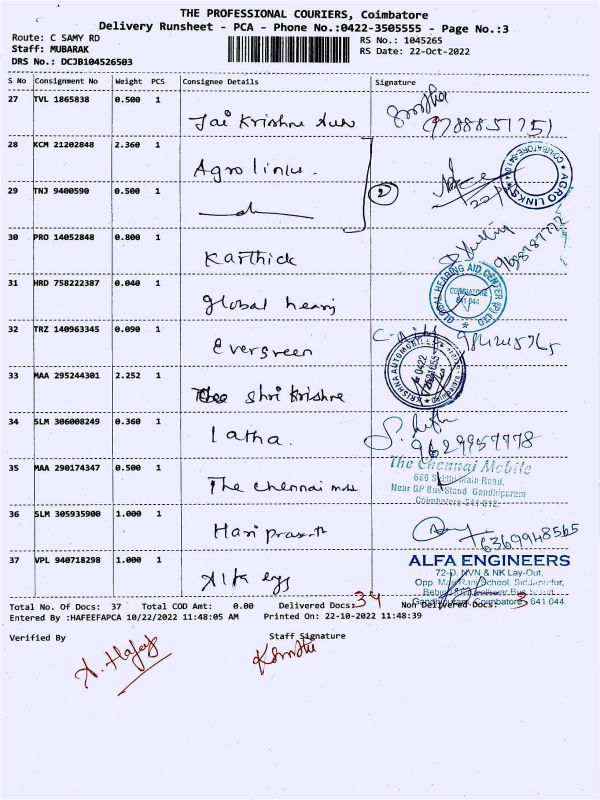 THE PROFESSIONAL COURIERS, Coimbatore
Delivery Runsheet - PCA - Phone No.:0422-3505555 - Page No.:3
Route: C SAMY RD
Staff: MUBARAK
DRS No.: DCJB104526503
RS No.: 1045265
RS Date: 22-Oct-2022
S No Consignment No Weight PCS Consignee Details Signature
27 TVL 1865838 0.500 1
Jai Krishna 9788851751
28 KCM 21202848 2.360 1
Agro links.
AGRO LINKS
29 TNJ 9400590 0.500 1
2
30 PRO 14052848 0.800 1
Karthick
31 HRD 758222387 0.040 1
Global
GLOBAL HEARING AID CENTER (P) LTD
COIMBATORE
641 044
32 TRZ 140963345 0.090 1
Evergreen
33 MAA 295244301 2.252 1
Shri Krishna
KRISHNA AUTOMOBILES
0422
34 SLM 306008249 0.360 1
Latha.
9629957778
35 MAA 290174347 0.500 1
The Chennai
The Chennai Mobile
Main Road,
Near GP Bus Stand Gandhipuram
Coimbatore-641 012.
36 SLM 305935900 1.000 1
6369948565
37 VPL 940718298 1.000 1
ALFA ENGINEERS
72-D, NVN & NK Lay-Out,
Opp. School, Siddapudur,
Coimbatore 641 044.
Total No. of Docs: 37 Total COD Amt: 0.00 Delivered Docs: 34 Non Delivered Docs: 3
Entered By :HAFEEFAPCA 10/22/2022 11:48:05 AM Printed On: 22-10-2022 11:48:39
Verified By Staff Signature
A. Hafeef